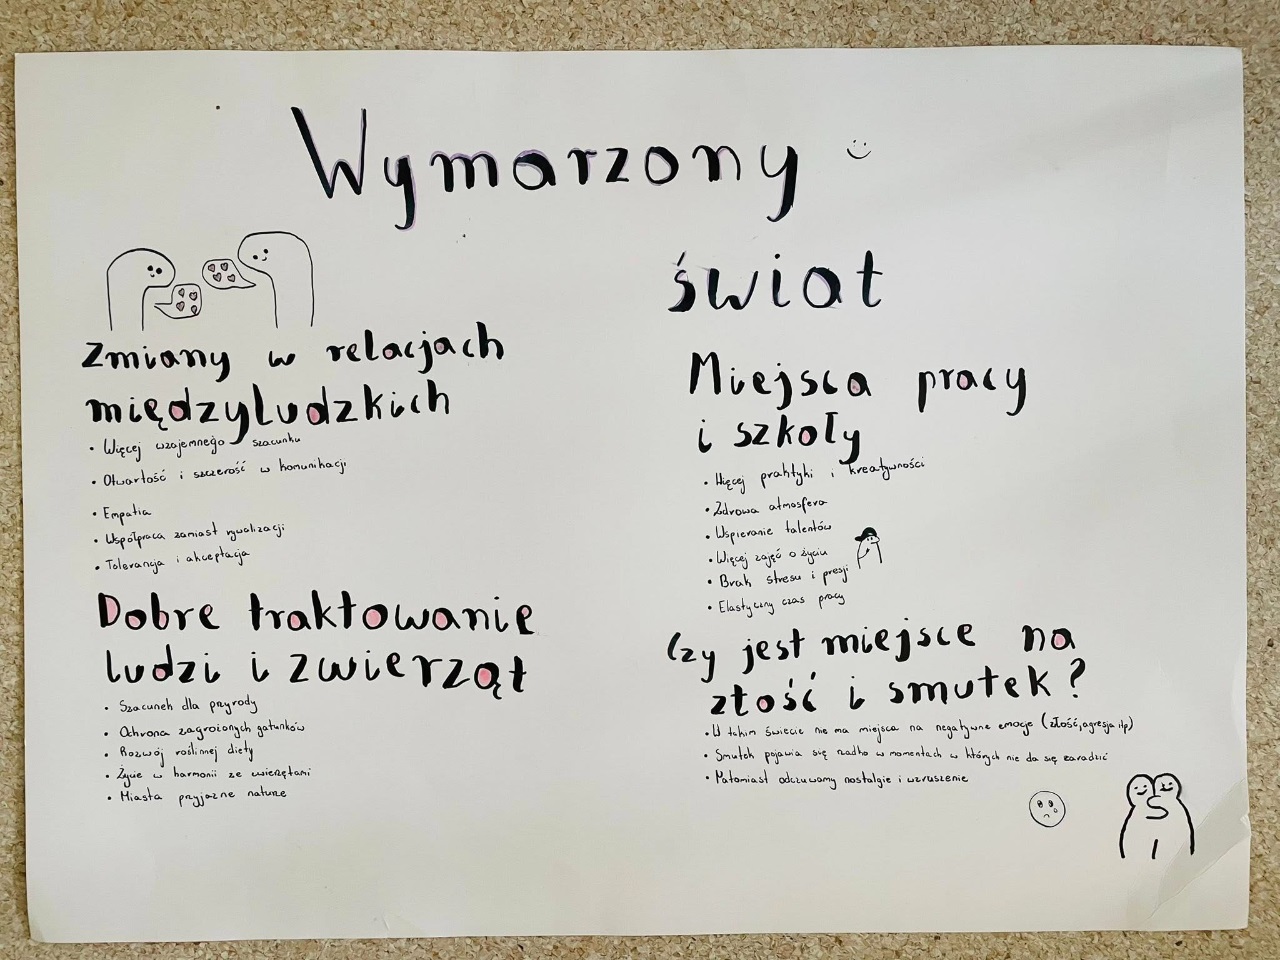 Wymarzony
świat
Zmiany w relacjach
międzyludzkich
• Więcej wzajemnego szacunku
• Otwartość i szczerość w komunikacji
• Empatia
• Współpraca zamiast rywalizacji
• Tolerancja i akceptacja
Dobre traktowanie
ludzi i zwierząt
• Szacunek dla przyrody
• Ochrona zagrożonych gatunków
• Rozwój roślinnej diety
• Życie w harmonii ze zwierzętami
• Miasta przyjazne naturze
Miejsca pracy
i szkoły
• Więcej praktyki i kreatywności
• Zdrowa atmosfera
• Wspieranie talentów
• Więcej zajęć o życiu
• Brak stresu i presji
• Elastyczny czas pracy
Czy jest miejsce na
złość i smutek?
• W takim świecie nie ma miejsca na negatywne emocje (złość, agresja itp)
• Smutek pojawia się rzadko w momentach w których nie da się zaradzić
• Natomiast odczuwamy nostalgie i wzruszenie